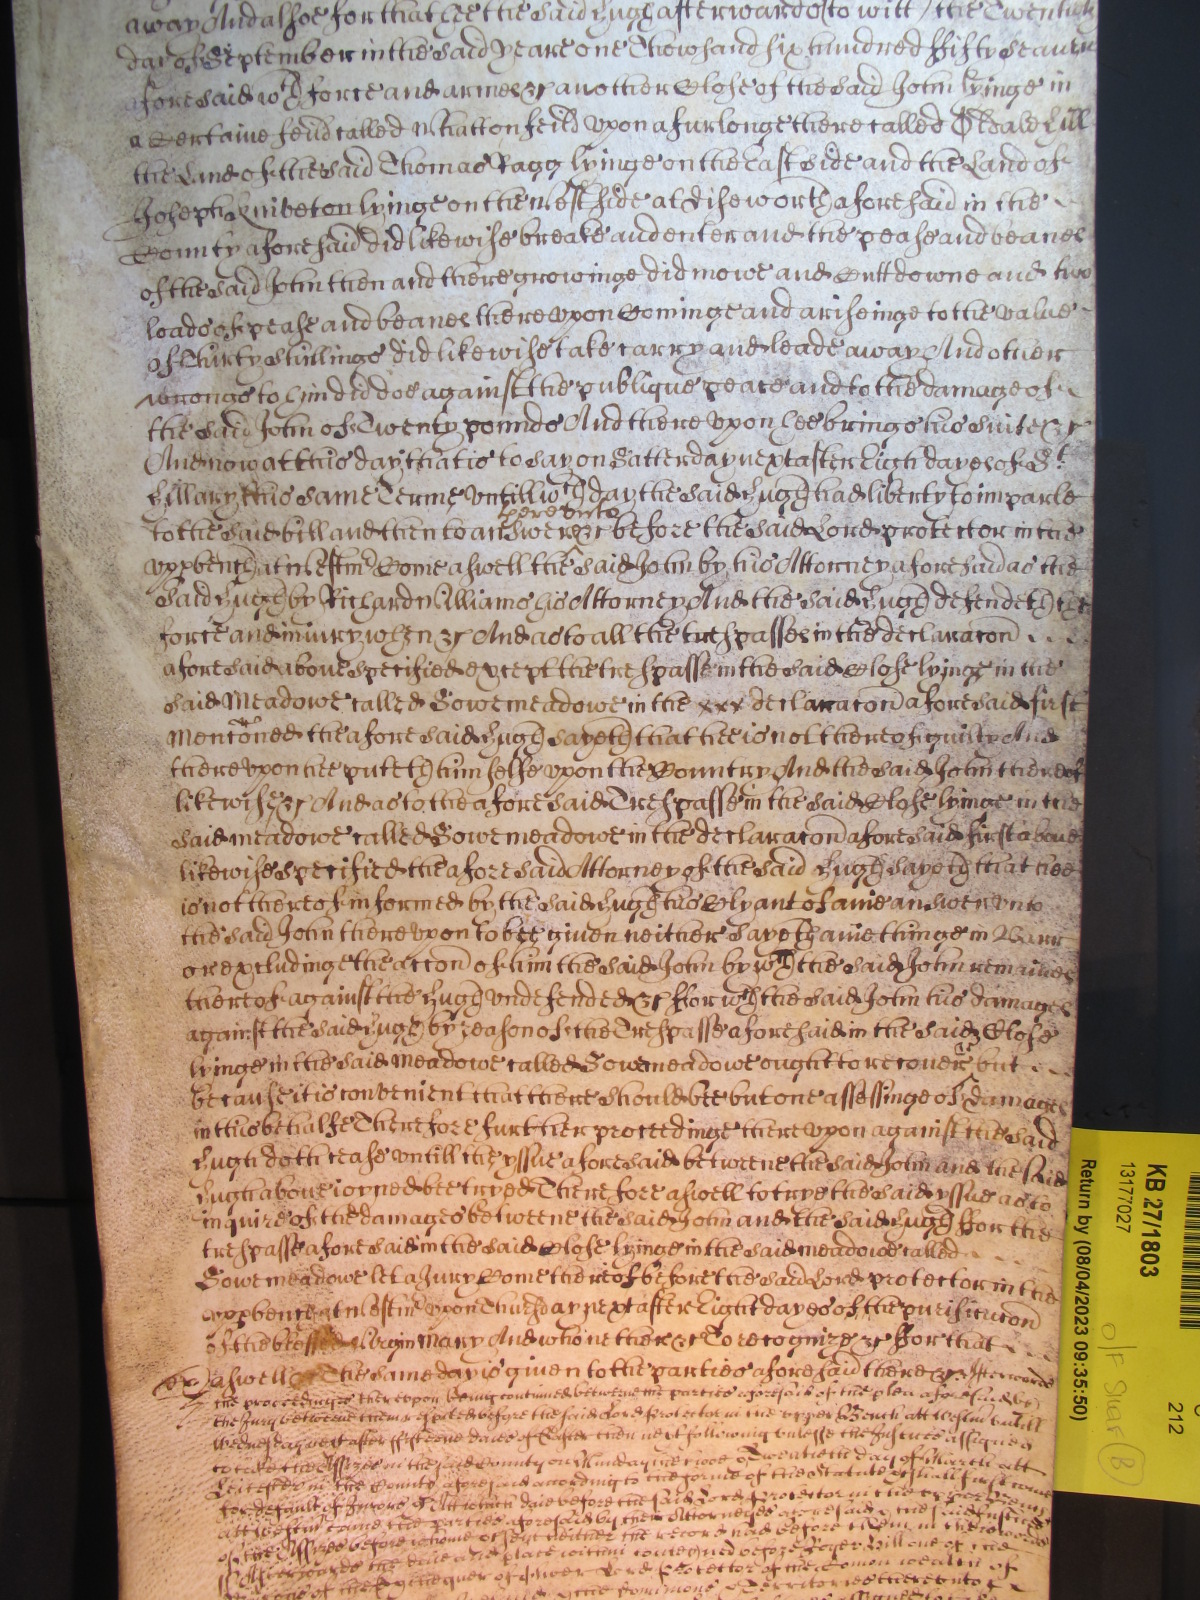 away And alsoe for that hee the said Hugh afterwards (to witt) the Twentieth
day of September in the said yeare one Thowsand six hundred fifty seaven
aforesaid wth force and armes &c another Close of the said John lyinge in
a Certaine feild called Whatton feild upon a furlonge there called
the Land of the said Thomas Ragg lyinge on the East side and the Land of
Joseph Kniveton lyinge on the west side at Diseworth aforesaid in the
County aforesaid did likewise breake and enter and the pease and beanes
of the said John then and there growinge did mowe and Cutt downe and two
loads of pease and beanes there upon Cominge and ariseinge to the value
of thirty shillings did likewise take carry and leade away And other
wrongs to him did doe against the publique peace and to the damage of
the said John of Twenty pounds And there upon hee brings his suite &c
And now att this day that is to say on Satterday next after Eight dayes of St
Hillary this same Terme untill wch day the said Hugh had liberty to imparle
to the said bill and then to answer &c before the said Lord protector in the
thereunto
uppbench at Westmr Come aswell the said John by his Attorney aforesaid as the
said Hugh by Richard Williams his Attorney And the said Hugh defendeth the
force and injury when &c And as to all the trespasses in the declaracon
aforesaid above specified except the trespasse in the said Close lyinge in the
said Meadowe called Sowemeadowe in the xxx declaracon aforesaid first
mentoned the aforesaid Hugh sayeth that hee is not thereof guilty And
thereupon hee putteth himselfe upon the Country And the said John thereof
likewise &c And as to the aforesaid Trespasse in the said Close lyinge in the
said meadowe called Sowemeadowe in the declaracon aforesaid first above
likewise specified the aforesaid Attorney of the said Hugh sayeth that hee
is not thereof informed by the said Hugh his Clyant of anie answer unto
the said John thereupon to bee given neither sayeth anie thinge in Barr
or excludinge the accon of him the said John by wch the said John remaines
thereof against the Hugh undefended &c ffor wch the said John his damages
against the said Hugh by reason of the Trespasse aforesaid in the said Close
lyinge in the said meadowe called Sowemeadowe ought to recover but
because it is convenient that there should bee but one assessinge of damages
in this behalfe Therefore further proceedinge thereupon against the said
Hugh doth cease untill the yssue aforesaid betweene the said John and the said
Hugh above joyned bee tryed Therefore aswell to trye the said yssue as to
inquire of the damages betweene the said John and the said Hugh ffor the
trespasse aforesaid in the said Close lyinge in the said meadowe called
Sowemeadowe let a Jury Come thereof before the said Lord protector in the
uppbench at Westmr upon Thursday next after Eight dayes of the purificacon
of the blessed Virgin Mary And who neither &c To recognize &c ffor that
aswell &c The same day is given to the parties aforesaid there &c Afterwards
the proceedings thereupon being continued betweene the parties aforesaid of the plea aforesaid by
the Jury betweene them respited before the said Lord Protector in the upper Bench att Westmr untill
Wednesday next after fifteene daies of Easter then next following unlesse the Justices assigned
to take the Assizes in the said County on Munday the Two & Twentieth day of March att
Leicester in the County aforesaid according to the forme of the Statute &c shall first come
for default of Jurors &c Att which daie before the said Lord Protector in the upper Bench
att Westmr come the parties aforesaid by their Attorneyes aforesaid And the said Justices
of the Assizes before whome &c sent hither the record had before them in these words
Afterwards the daie and place within conteyned before Roger Hill one of the
Barons of the Exchequer of Oliver Lord Protector of the Comon wealth of
the dominions & Territories thereunto

KB 27/1803
13177027
Return by (08/04/2023 09:35:50)
212